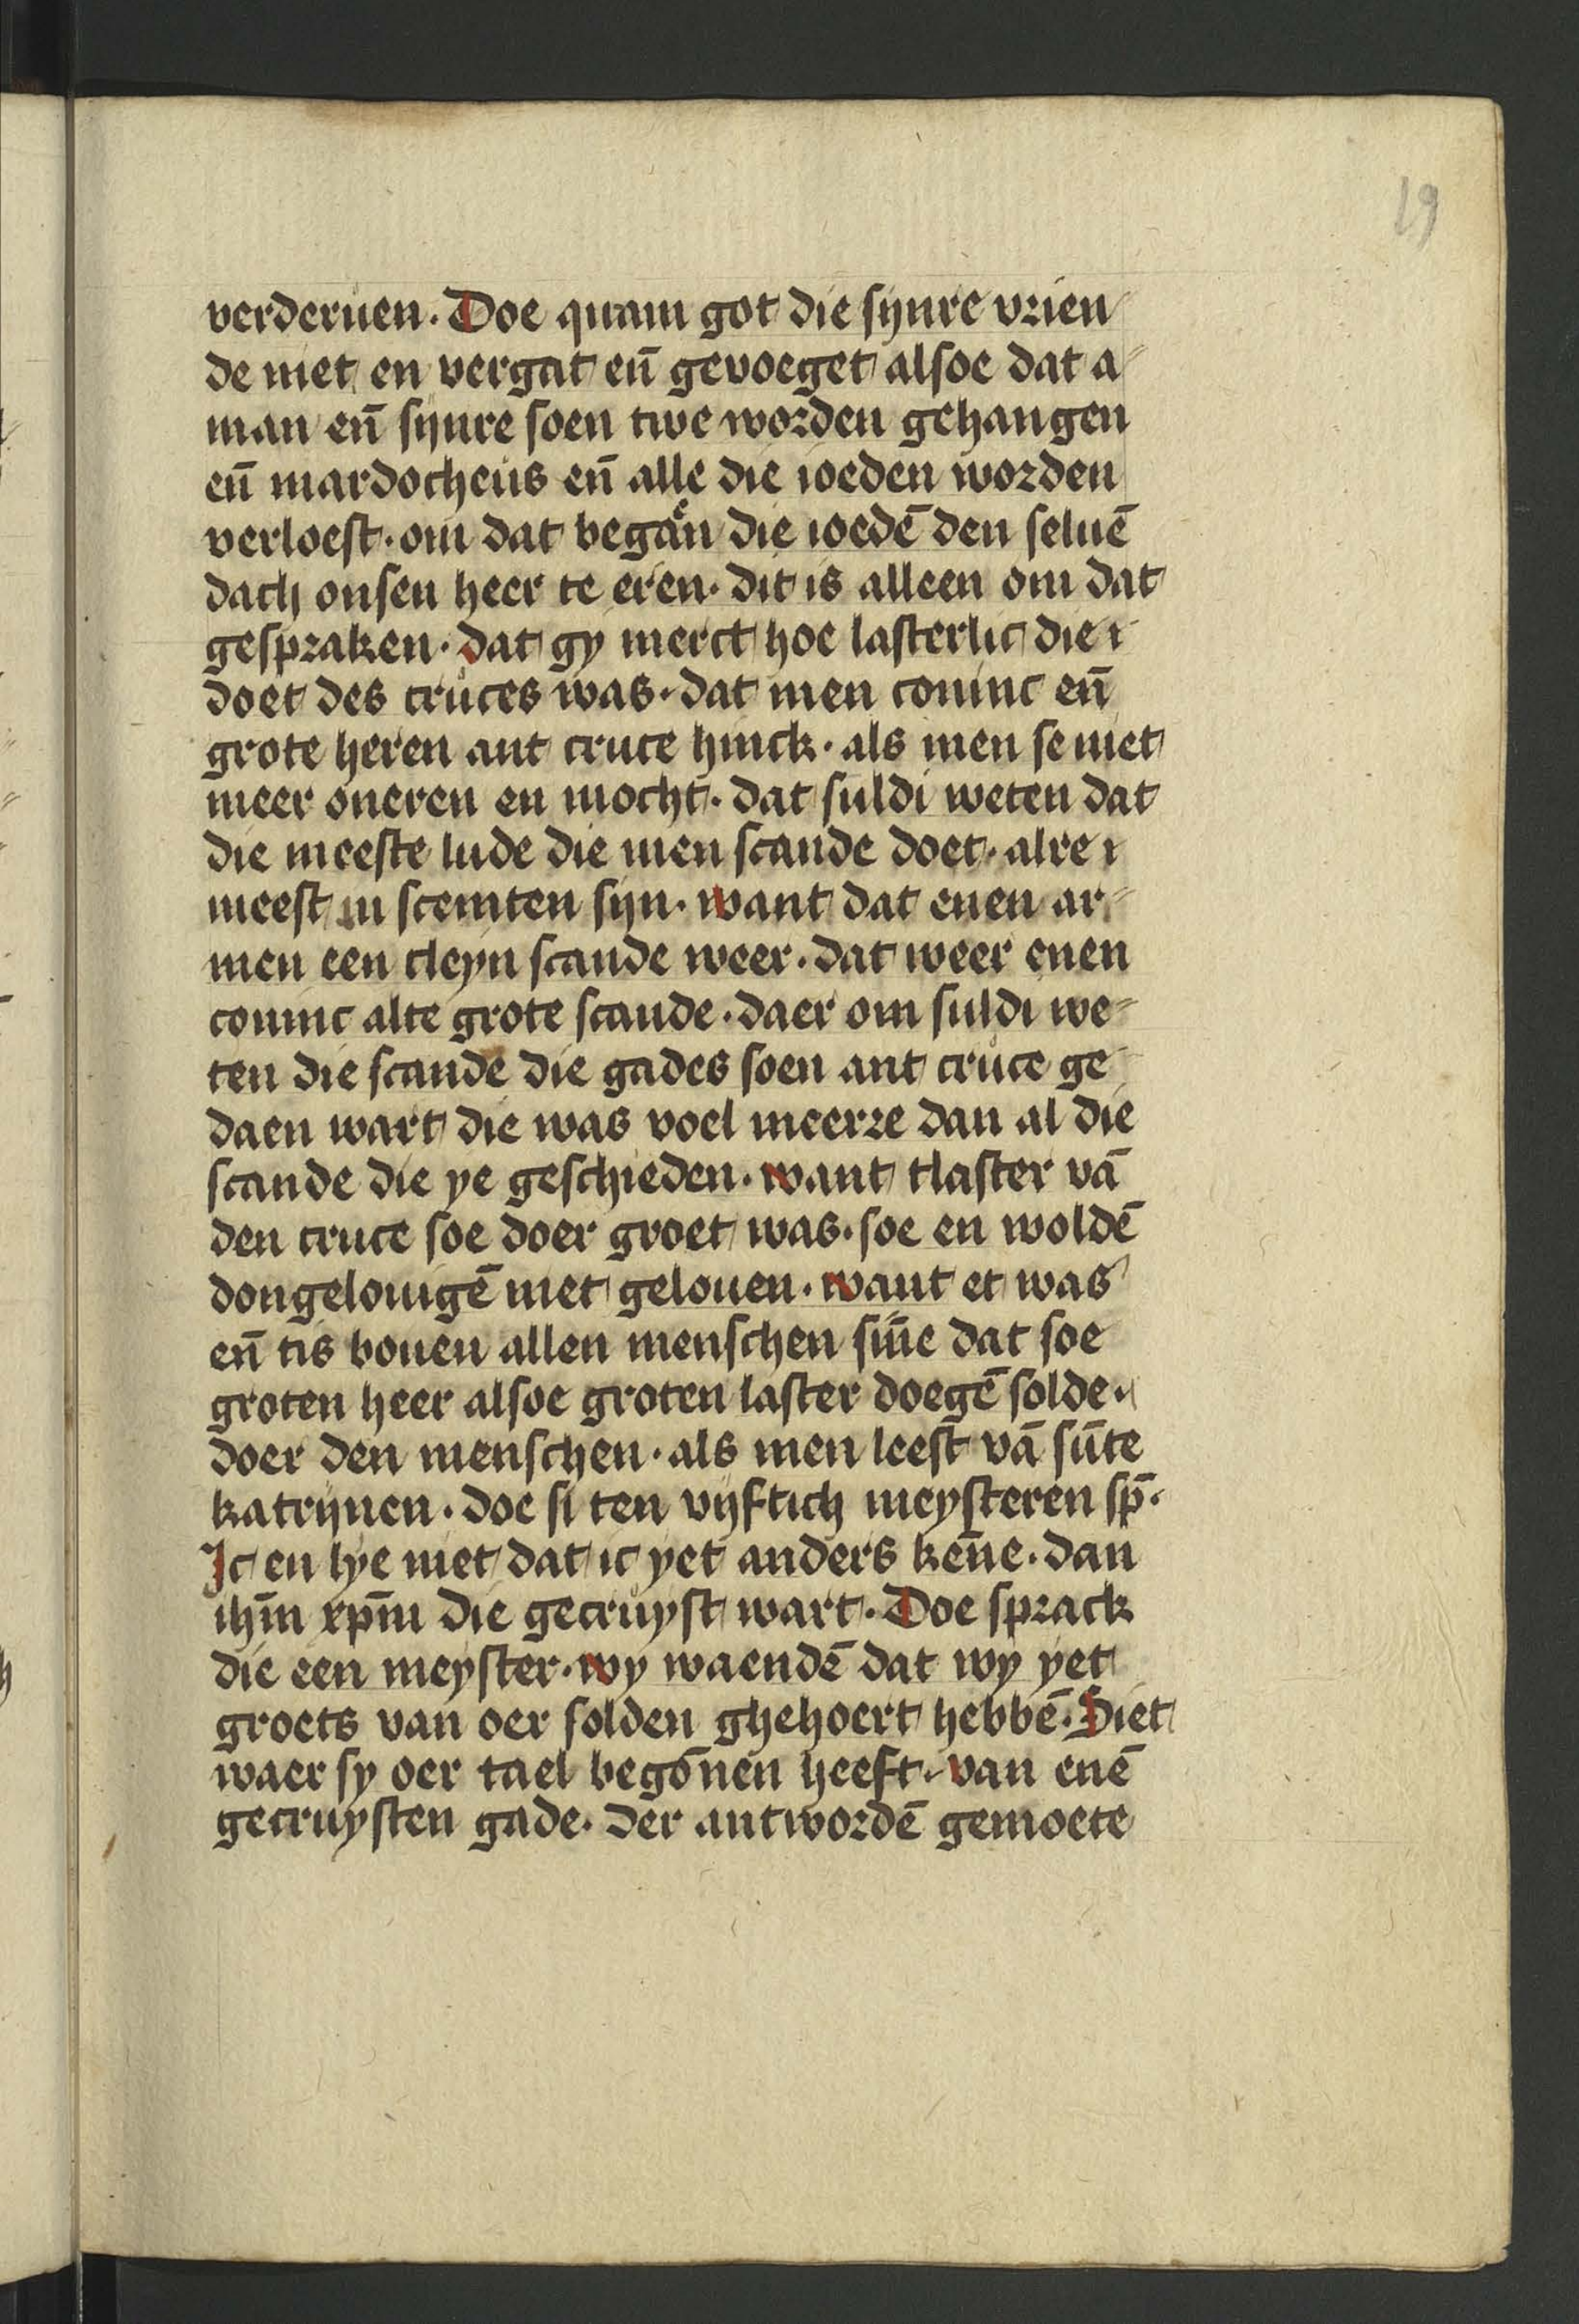 19
verderuen. Doe quam got die sijnre vrien
de niet en vergat en̄ gevoeget alsoe dat a-
man en̄ sijnre soen twe worden gehangen
en̄ mardocheus en̄ alle die ioeden worden
verloest. om dat began die ioedē den seluē
dach onsen heer te eren. dit is alleen om dat
gespraken. dat gy merct hoe lasterlic die
doet des cruces was. dat men coninc en̄
grote heren ant cruce hinck. als men se niet
meer oneren en mocht. dat suldi weten dat
die meeste lude die men scande doet. alre
meest in scemten sijn. want dat enen ar-
men een cleyn scande weer. dat weer enen
coninc alte grote scande. daer om suldi we-
ten die scande die gades soen ant cruce ge
daen wart die was voel meerre dan al die
scande die ye geschieden. want tlaster vā
den cruce soe doer groet was. soe en woldē
dongelouigē niet gelouen. want et was
en̄ tis bouen allen menschen sin̄e dat soe
groten heer alsoe groten laster doegē solde.
doer den menschen. als men leest vā sūte
katrijnen. doe si ten vijftich meysteren sp̄.
Ic en lye niet dat ic yet anders ken̄e. dan
ihm̄ xpm̄ die gecruyst wart. Doe sprack
die een meyster. wy waendē dat wy yet
groets van oer solden ghehoert hebbē. Siet
waer sy oer tael begōnen heeft. van enē
gecruysten gade. Der antwordē gemoete